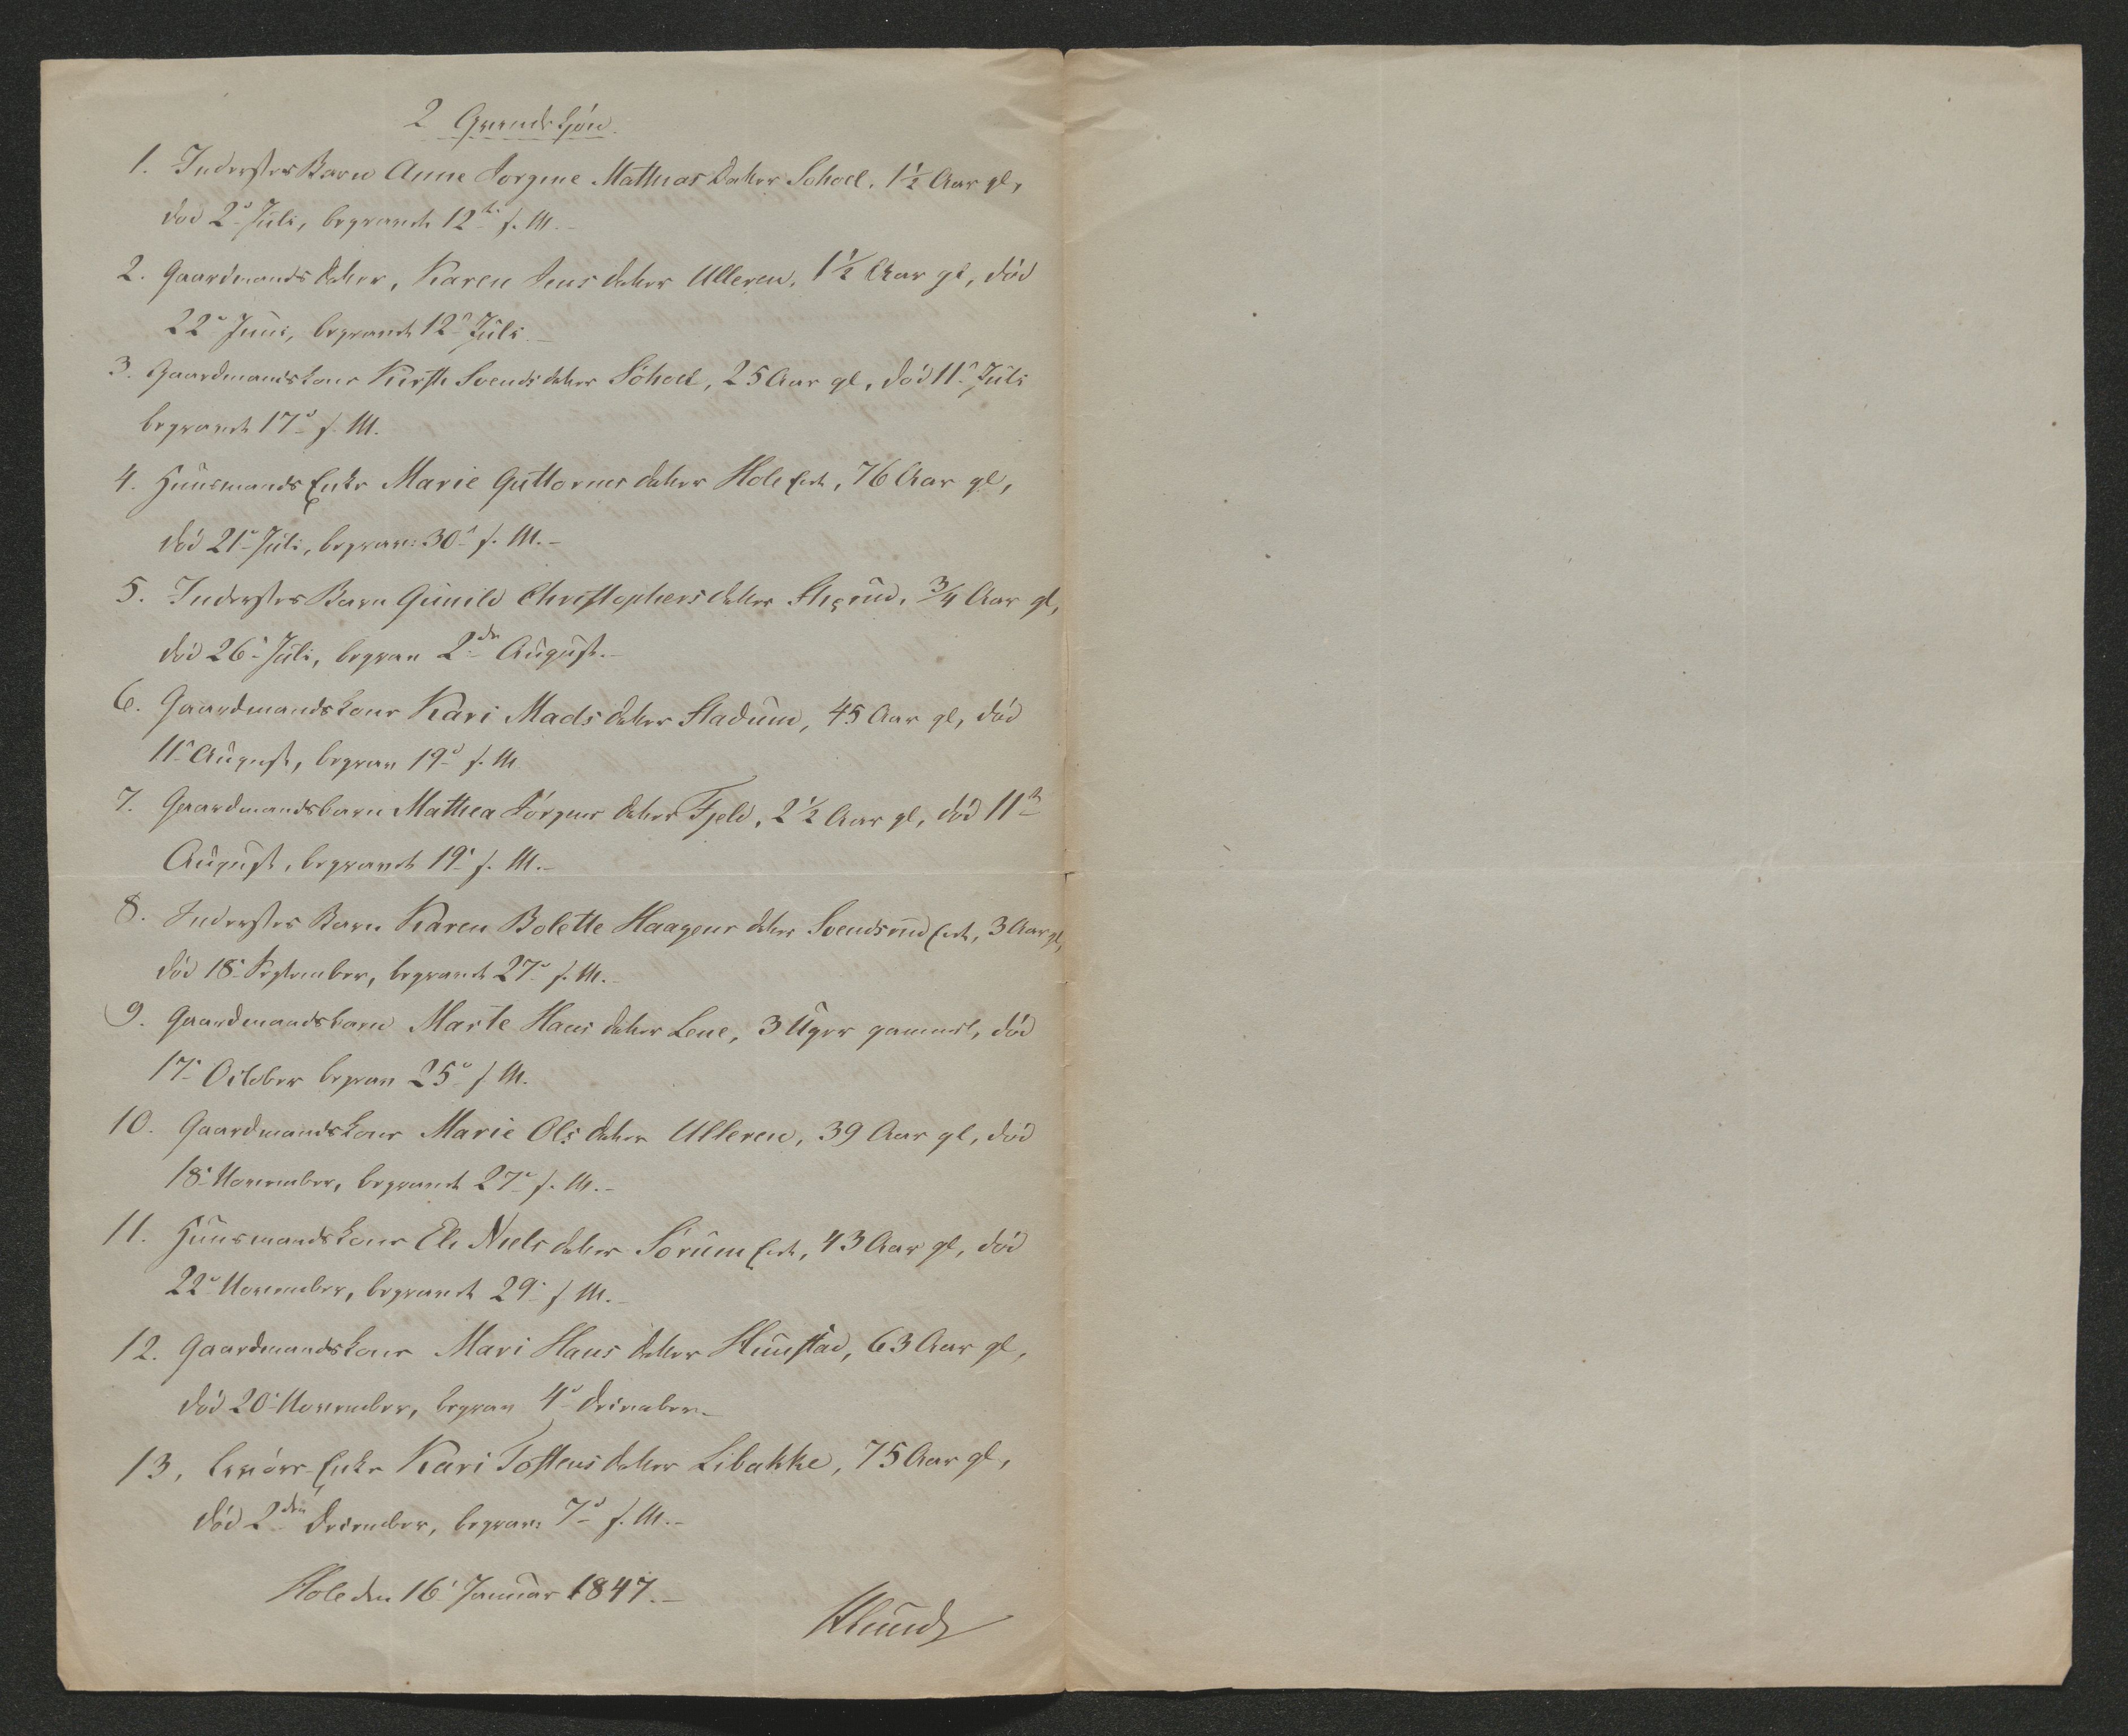 2 Qvindekjön.
1. Inderstes Barn Anne Jorgine Mathias Datter Sohoel, 1 1/2 Aar gl,
död 2d Juli, begravet 12te s. M.-
2. Gaardmands Datter, Karen Jens datter Ulleren, 1 1/2 Aar gl, död
22d Juni, begravet 12d Juli.-
3. Gaardmandskone Kirsti Svends datter Sohoel, 25 Aar gl, död 11d Juli
begravet 17d s. M.
4. Huusmands Enke Marie Guttorms datter Hole Eiet, 76 Aar gl,
död 21d Juli, begrav: 30d s. M.-
5. Inderstes Barn Gunild Christophers datter 3/4 Aar gl,
död 26d Juli, begrav 2den August.-
6. Gaardmandskone Kari Mads datter Stadum, 45 Aar gl, död
11d August, begrav 19d s. M
7. Gaardmandsbarn Mathea Jörgens datter Fjeld, 2 1/2 Aar gl, död 11te
August, begravet 19d s. M.-
8. Inderstes Barn Karen Bolette Haagens datter Svendsrud Eiet, 3 Aar gl,
död 18d September, begravet 27d s. M.-
9. Gaardmandsbarn Marte Hans datter Lene, 3 Uger gammel, död
17d October begrav 25d s. M.
10. Gaardmandskone Marie Ols datter Ulleren, 39 Aar gl, död
18d November, begravet 27d s. M.-
11. Huusmandskone Eli Niels datter Sörum Eiet, 43 Aar gl, död
22d November, begravet 29d s. M.-
12. Gaardmandskone Mari Hans datter Hunstad, 63 Aar gl,
död 20d November, begrav 4d December.-
13, Enke Kari Tostens datter Libakke, 75 Aar gl,
död 2den December, begrav: 7d s. M.-
Hole den 16d Januar 1847.-